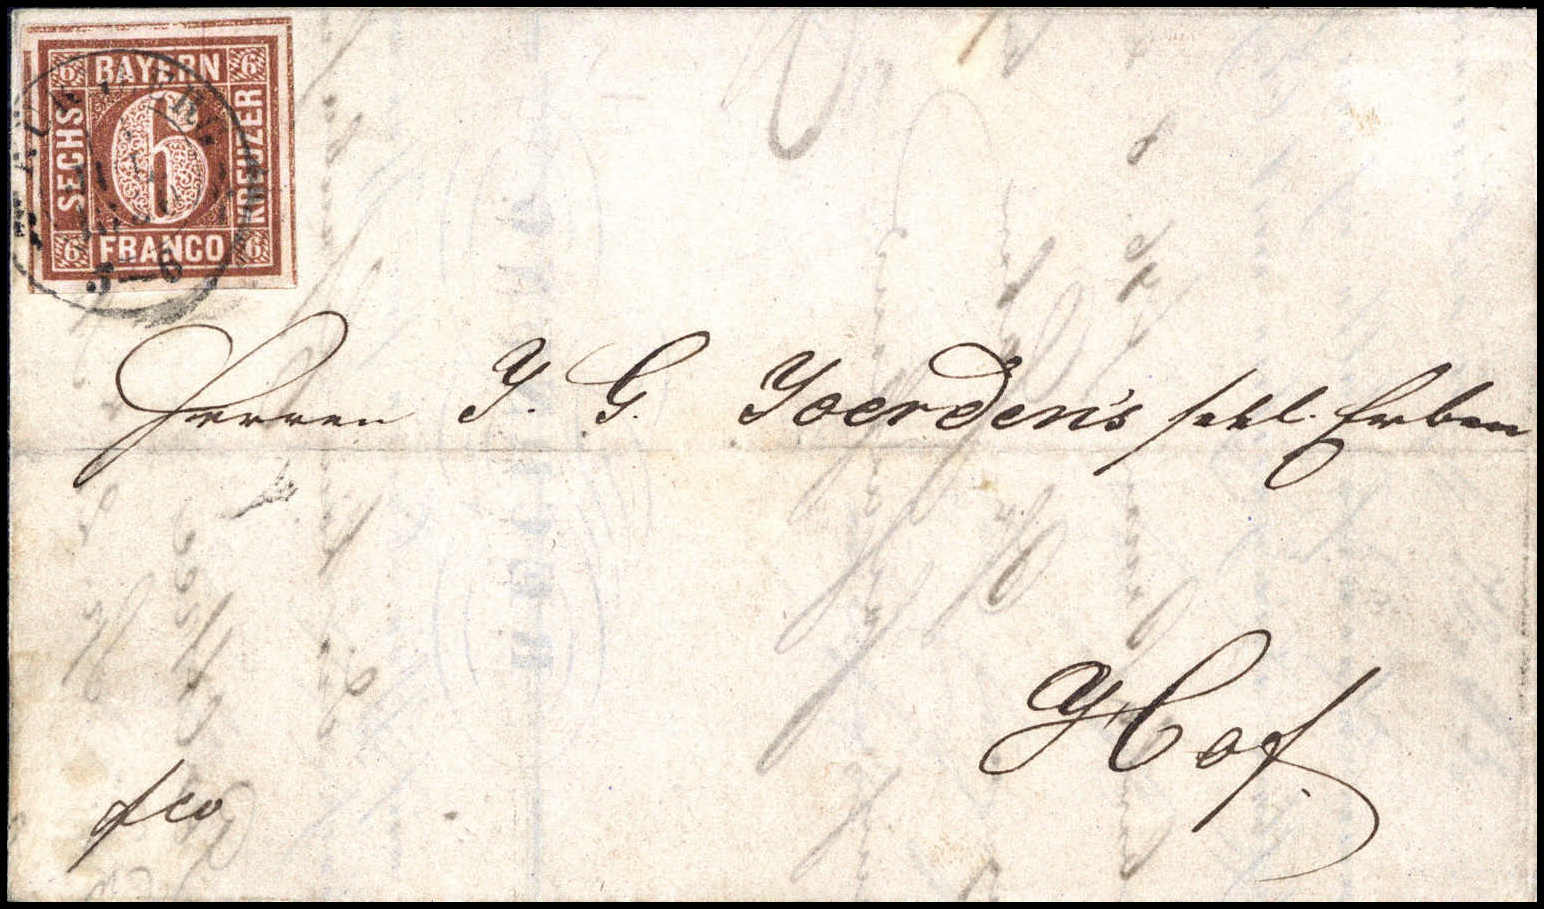 6 BAYERN 6
SECHS 6 KREUZER
6 FRANCO 6
5-6
Herren J. G. Joerden's sehl. Erben
Hof.
fco